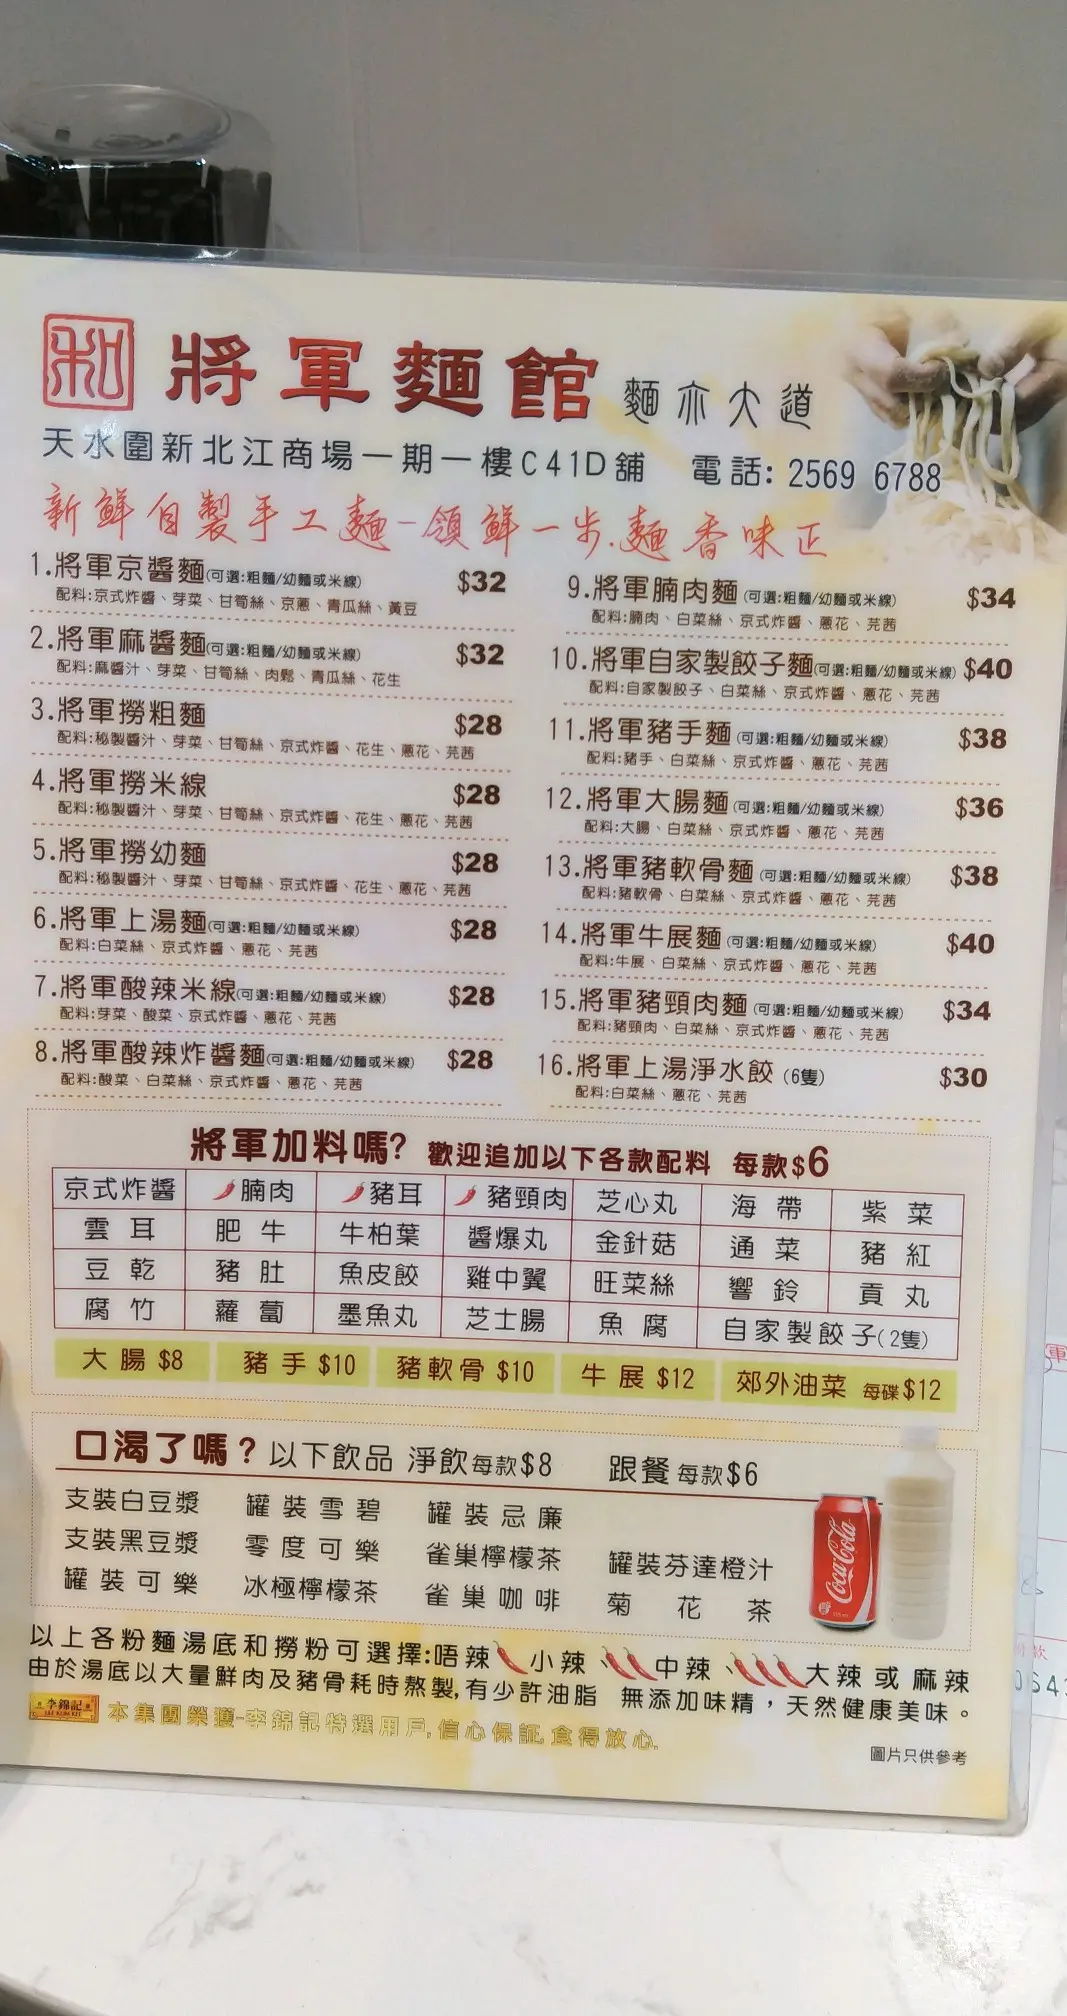 和
將軍麵館 麵亦大道
天水圍新北江商場一期一樓C41D舖 電話: 2569 6788
新鮮自製手工麵-領鮮一步.麵香味正
1.將軍京醬麵(可選:粗麵/幼麵或米線) $32
配料:京式炸醬、芽菜、甘筍絲、京蔥、青瓜絲、黃豆
2.將軍麻醬麵(可選:粗麵/幼麵或米線) $32
配料:麻醬汁、芽菜、甘筍絲、肉鬆、青瓜絲、花生
3.將軍撈粗麵 $28
配料:秘製醬汁、芽菜、甘筍絲、京式炸醬、花生、蔥花、芫茜
4.將軍撈米線 $28
配料:秘製醬汁、芽菜、甘筍絲、京式炸醬、花生、蔥花、芫茜
5.將軍撈幼麵 $28
配料:秘製醬汁、芽菜、甘筍絲、京式炸醬、花生、蔥花、芫茜
6.將軍上湯麵(可選:粗麵/幼麵或米線) $28
配料:白菜絲、京式炸醬、蔥花、芫茜
7.將軍酸辣米線(可選:粗麵/幼麵或米線) $28
配料:芽菜、酸菜、京式炸醬、蔥花、芫茜
8.將軍酸辣炸醬麵(可選:粗麵/幼麵或米線) $28
配料:酸菜、白菜絲、京式炸醬、蔥花、芫茜
9.將軍腩肉麵(可選:粗麵/幼麵或米線) $34
配料:腩肉、白菜絲、京式炸醬、蔥花、芫茜
10.將軍自家製餃子麵(可選:粗麵/幼麵或米線) $40
配料:自家製餃子、白菜絲、京式炸醬、蔥花、芫茜
11.將軍豬手麵(可選:粗麵/幼麵或米線) $38
配料:豬手、白菜絲、京式炸醬、蔥花、芫茜
12.將軍大腸麵(可選:粗麵/幼麵或米線) $36
配料:大腸、白菜絲、京式炸醬、蔥花、芫茜
13.將軍豬軟骨麵(可選:粗麵/幼麵或米線) $38
配料:豬軟骨、白菜絲、京式炸醬、蔥花、芫茜
14.將軍牛展麵(可選:粗麵/幼麵或米線) $40
配料:牛展、白菜絲、京式炸醬、蔥花、芫茜
15.將軍豬頸肉麵(可選:粗麵/幼麵或米線) $34
配料:豬頸肉、白菜絲、京式炸醬、蔥花、芫茜
16.將軍上湯淨水餃(6隻) $30
配料:白菜絲、蔥花、芫茜
將軍加料嗎? 歡迎追加以下各款配料 每款$6
京式炸醬 腩肉 豬耳 豬頸肉 芝心丸 海帶 紫菜
雲耳 肥牛 牛柏葉 醬爆丸 金針菇 通菜 豬紅
豆乾 豬肚 魚皮餃 雞中翼 旺菜絲 響鈴 貢丸
腐竹 蘿蔔 墨魚丸 芝士腸 魚腐 自家製餃子(2隻)
大腸 $8 豬手 $10 豬軟骨 $10 牛展 $12 郊外油菜 每碟$12
口渴了嗎?以下飲品 淨飲每款$8 跟餐每款$6
支裝白豆漿 罐裝雪碧 罐裝忌廉
支裝黑豆漿 零度可樂 雀巢檸檬茶 罐裝芬達橙汁
罐裝可樂 冰極檸檬茶 雀巢咖啡 菊花茶
Coca-Cola
以上各粉麵湯底和撈粉可選擇:唔辣 小辣、中辣、大辣或麻辣
由於湯底以大量鮮肉及豬骨耗時熬製,有少許油脂 無添加味精,天然健康美味。
李錦記
LEE KUM KEE
本集團榮獲-李錦記特選用戶,信心保証,食得放心.
圖片只供參考